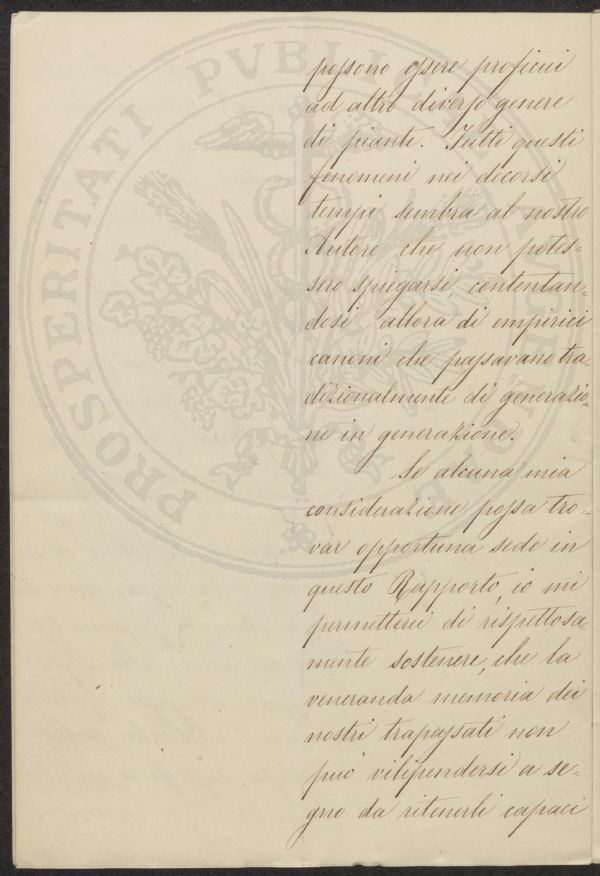 possono essere proficui
ad altro diverso genere
di piante. Tutti questi
fenomeni nei decorsi
tempi sembra al nostro
Autore che non potes=
sero spiegarsi contentan=
dosi allora di empirici
canoni che passavano tra=
dizionalmente di generazio=
ne in generazione.
Se alcuna mia
considerazione possa tro=
var opportuna sede in
questo Rapporto, io mi
permetterei di rispettosa=
mente sostenere, che la
veneranda memoria dei
nostri trapassati non
può vilipendersi a se=
gno da ritenerli capaci
PROSPERITATI PVBLICAE